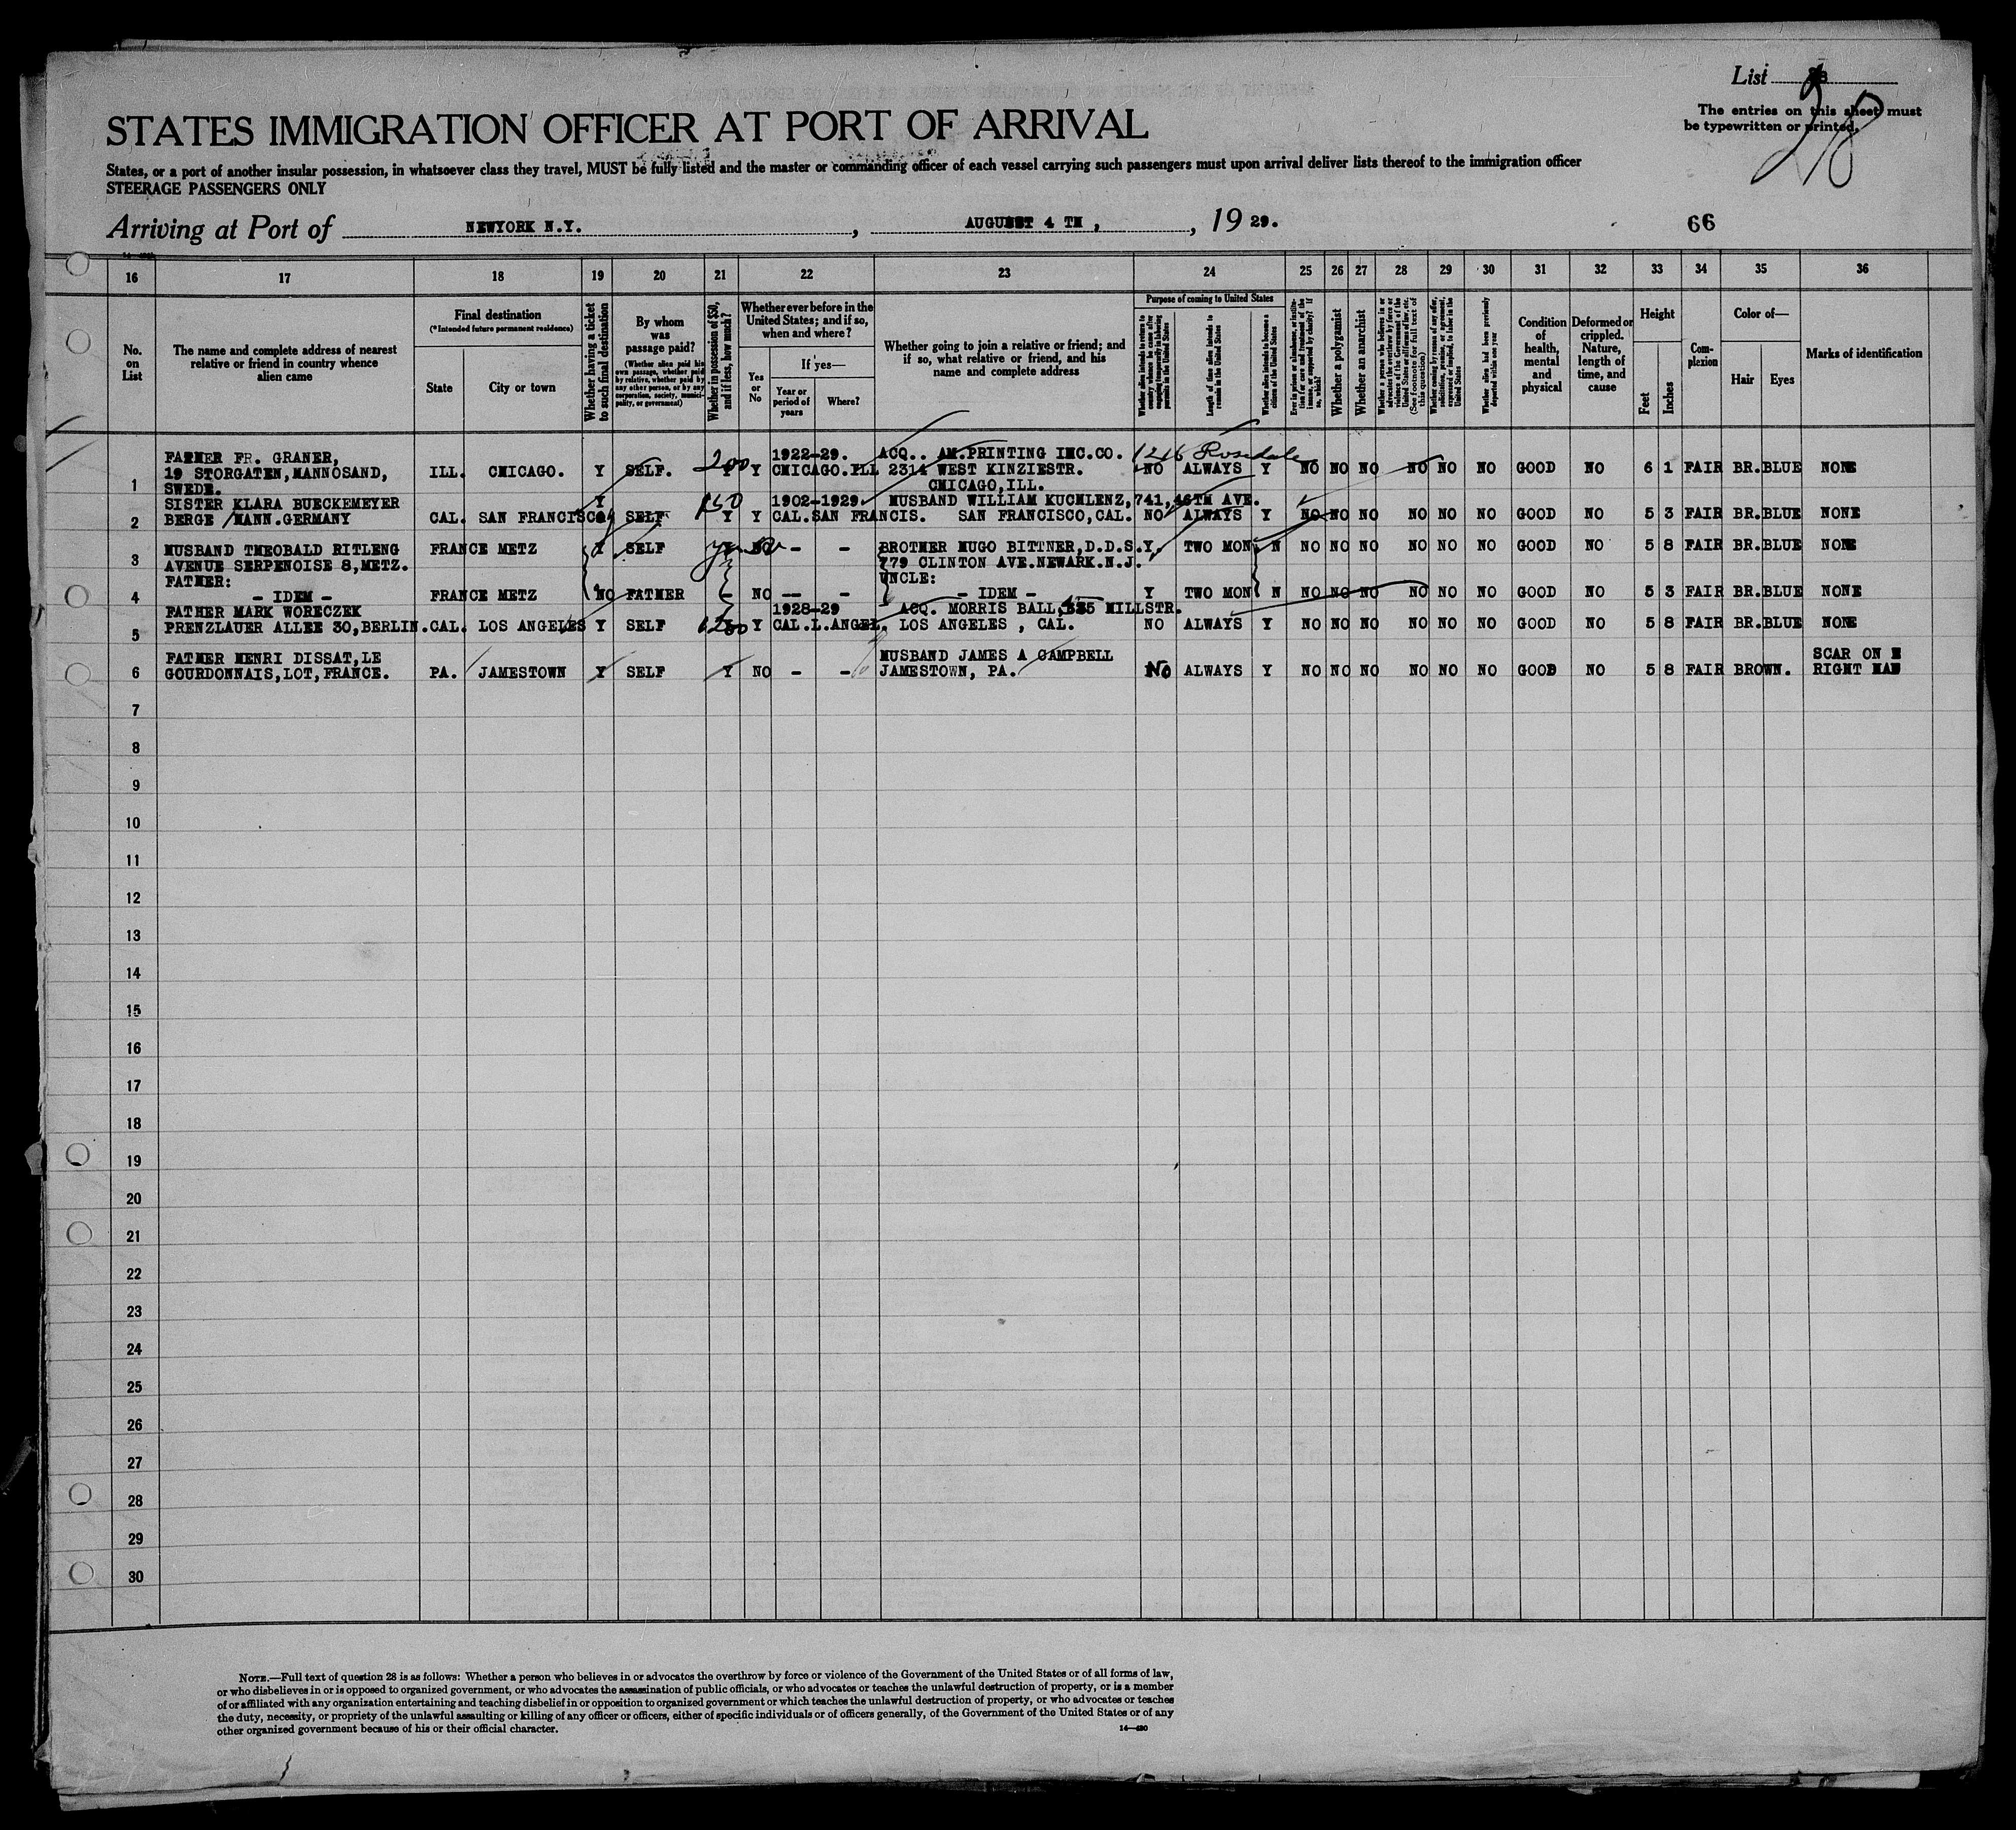 List 28
The entries on this sheet must
be typewritten or printed.
28
STATES IMMIGRATION OFFICER AT PORT OF ARRIVAL
States, or a port of another insular possession, in whatsoever class they travel, MUST be fully listed and the master or commanding officer of each vessel carrying such passengers must upon arrival deliver lists thereof to the immigration officer
STEERAGE PASSENGERS ONLY
Arriving at Port of NEWYORK N.Y. , AUGUST 4 TH , , 19 29.
66
16 17 18 19 20 21 22 23 24 25 26 27 28 29 30 31 32 33 34 35 36
No. on List
The name and complete address of nearest relative or friend in country whence alien came
Final destination
(*Intended future permanent residence)
State
City or town
Whether having a ticket to such final destination
By whom was passage paid?
(Whether alien paid his own passage, whether paid by relative, whether paid by any other person, or by any corporation, society, municipality, or government)
Whether in possession of $50, and if less, how much?
Whether ever before in the United States; and if so, when and where?
Yes or No
If yes—
Year or period of years
Where?
Whether going to join a relative or friend; and if so, what relative or friend, and his name and complete address
Purpose of coming to United States
Length of time alien intends to remain in the United States
Whether alien intends to become a citizen of the United States
Whether a polygamist
Whether an anarchist
Whether alien had been previously deported within one year
Condition of health, mental and physical
Deformed or crippled. Nature, length of time, and cause
Height
Feet
Inches
Complexion
Color of—
Hair
Eyes
Marks of identification
FATHER FR. GRANER, 1922-29. ACQ.. AM.PRINTING INC.CO. 1216 Rosedale
19 STORGATEN, HANNOSAND, ILL. CHICAGO. Y SELF. 200 Y Y CHICAGO.ILL 2314 WEST KINZIESTR. NO ALWAYS Y NO NO NO NO NO NO GOOD NO 6 1 FAIR BR. BLUE NONE
1 SWEDE. CHICAGO, ILL.
SISTER KLARA BUECKEMEYER Y 150 1902-1929 HUSBAND WILLIAM KUCHLENZ, 741, 46TH AVE.
2 BERGE /HANN. GERMANY CAL. SAN FRANCISCO SELF Y Y CAL. SAN FRANCIS. SAN FRANCISCO, CAL. NO ALWAYS Y NO NO NO NO NO NO GOOD NO 5 3 FAIR BR. BLUE NONE
3 HUSBAND THEOBALD RITLENG FRANCE METZ Y SELF NO - - BROTHER HUGO BITTNER, D.D.S. Y. TWO MON N NO NO NO NO NO NO GOOD NO 5 8 FAIR BR. BLUE NONE
AVENUE SERPENOISE 8, METZ. 779 CLINTON AVE. NEWARK. N.J.
FATHER: UNCLE:
4 - IDEM - FRANCE METZ NO FATHER - NO - - - IDEM - Y TWO MON N NO NO NO NO NO NO GOOD NO 5 3 FAIR BR. BLUE NONE
FATHER MARK WORECZEK 1928-29 ACQ. MORRIS BALL, 535 MILLSTR.
5 PRENZLAUER ALLEE 30, BERLIN. CAL. LOS ANGELES Y SELF Y CAL. L. ANGEL, LOS ANGELES , CAL. NO ALWAYS Y NO NO NO NO NO NO GOOD NO 5 8 FAIR BR. BLUE NONE
FATHER HENRI DISSAT, LE HUSBAND JAMES A CAMPBELL SCAR ON
6 GOURDONNAIS, LOT, FRANCE. PA. JAMESTOWN Y SELF Y NO - - JAMESTOWN, PA. NO ALWAYS Y NO NO NO NO NO NO GOOD NO 5 8 FAIR BROWN. RIGHT HAD
7
8
9
10
11
12
13
14
15
16
17
18
19
20
21
22
23
24
25
26
27
28
29
30
NOTE.—Full text of question 28 is as follows: Whether a person who believes in or advocates the overthrow by force or violence of the Government of the United States or of all forms of law,
or who disbelieves in or is opposed to organized government, or who advocates the assassination of public officials, or who advocates or teaches the unlawful destruction of property, or is a member
of or affiliated with any organization entertaining and teaching disbelief in or opposition to organized government or which teaches the unlawful destruction of property, or who advocates or teaches
the duty, necessity, or propriety of the unlawful assaulting or killing of any officer or officers, either of specific individuals or of officers generally, of the Government of the United States or of any
other organized government because of his or their official character.
14—430